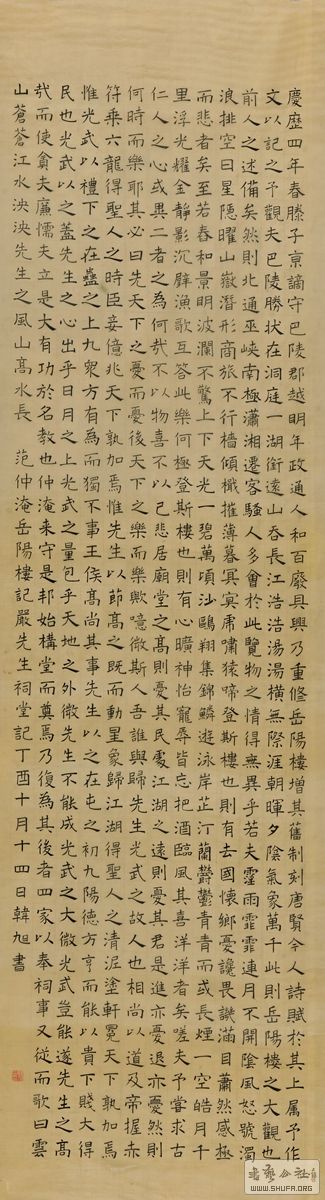 慶歷四年春滕子京謫守巴陵郡越明年政通人和百廢具興乃重修岳陽樓增其舊制刻唐賢今人詩賦於其上属予作
文以記之予觀夫巴陵勝狀在洞庭一湖銜遠山吞長江浩浩湯湯橫無際涯朝暉夕陰氣象萬千此則岳陽樓之大觀也
前人之述備矣然則北通巫峽南極瀟湘遷客騷人多會於此覽物之情得無異乎若夫霪雨霏霏連月不開陰風怒號濁
浪排空日星隱曜山嶽潛形商旅不行檣傾檝摧薄暮冥冥虎嘯猿啼登斯樓也則有去國懷鄉憂讒畏譏滿目蕭然感極
而悲者矣至若春和景明波瀾不驚上下天光一碧萬頃沙鷗翔集錦鱗游泳岸芷汀蘭鬱鬱青青而或長煙一空皓月千
里浮光耀金靜影沉璧漁歌互答此樂何極登斯樓也則有心曠神怡寵辱皆忘把酒臨風其喜洋洋者矣嗟夫予嘗求古
仁人之心或異二者之為何哉不以物喜不以己悲居廟堂之高則憂其民處江湖之遠則憂其君是進亦憂退亦憂然則
何時而樂耶其必曰先天下之憂而憂後天下之樂而樂歟噫微斯人吾誰與歸先生光武之故人也相尚以道及帝握赤
符乘六龍得聖人之時臣妾億兆天下孰加焉惟先生以節高之既而動星象歸江湖得聖人之清泥塗軒冕天下孰加焉
惟光武以禮下之在蠱之上九眾方有為而獨不事王侯高尚其事先生以之在屯之初九陽德方亨而能以貴下賤大得
民也光武以之蓋先生之心出乎日月之上光武之量包乎天地之外微先生不能成光武之大微光武豈能遂先生之高
哉而使貪夫廉懦夫立是大有功於名教也仲淹來守是邦始構堂而奠焉乃復為其後者四家以奉祠事又從而歌曰雲
山蒼蒼江水泱泱先生之風山高水長 范仲淹岳陽樓記嚴先生祠堂記丁酉十月十四日韓旭書
書藝公社
WWW.SHUFA.ORG